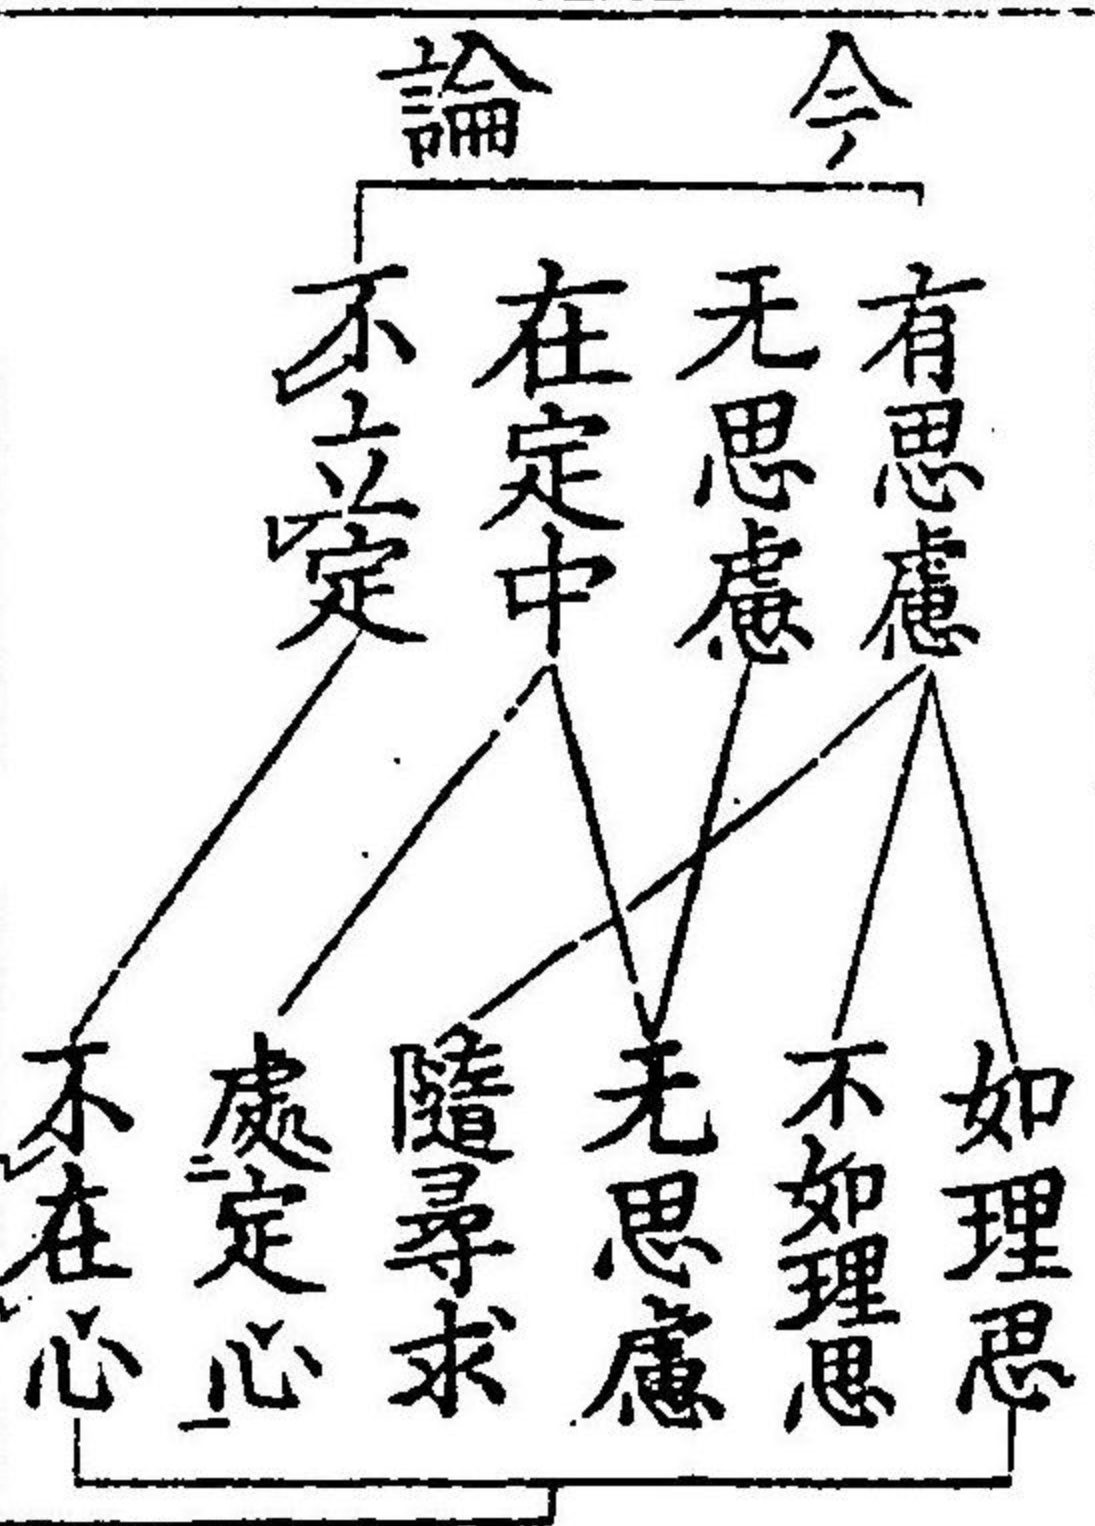 今論
有思慮
无思慮
在定中
不レ立レ定
如理思
不如理思
无思慮
隨尋求
處二定心一
不レ在レ心